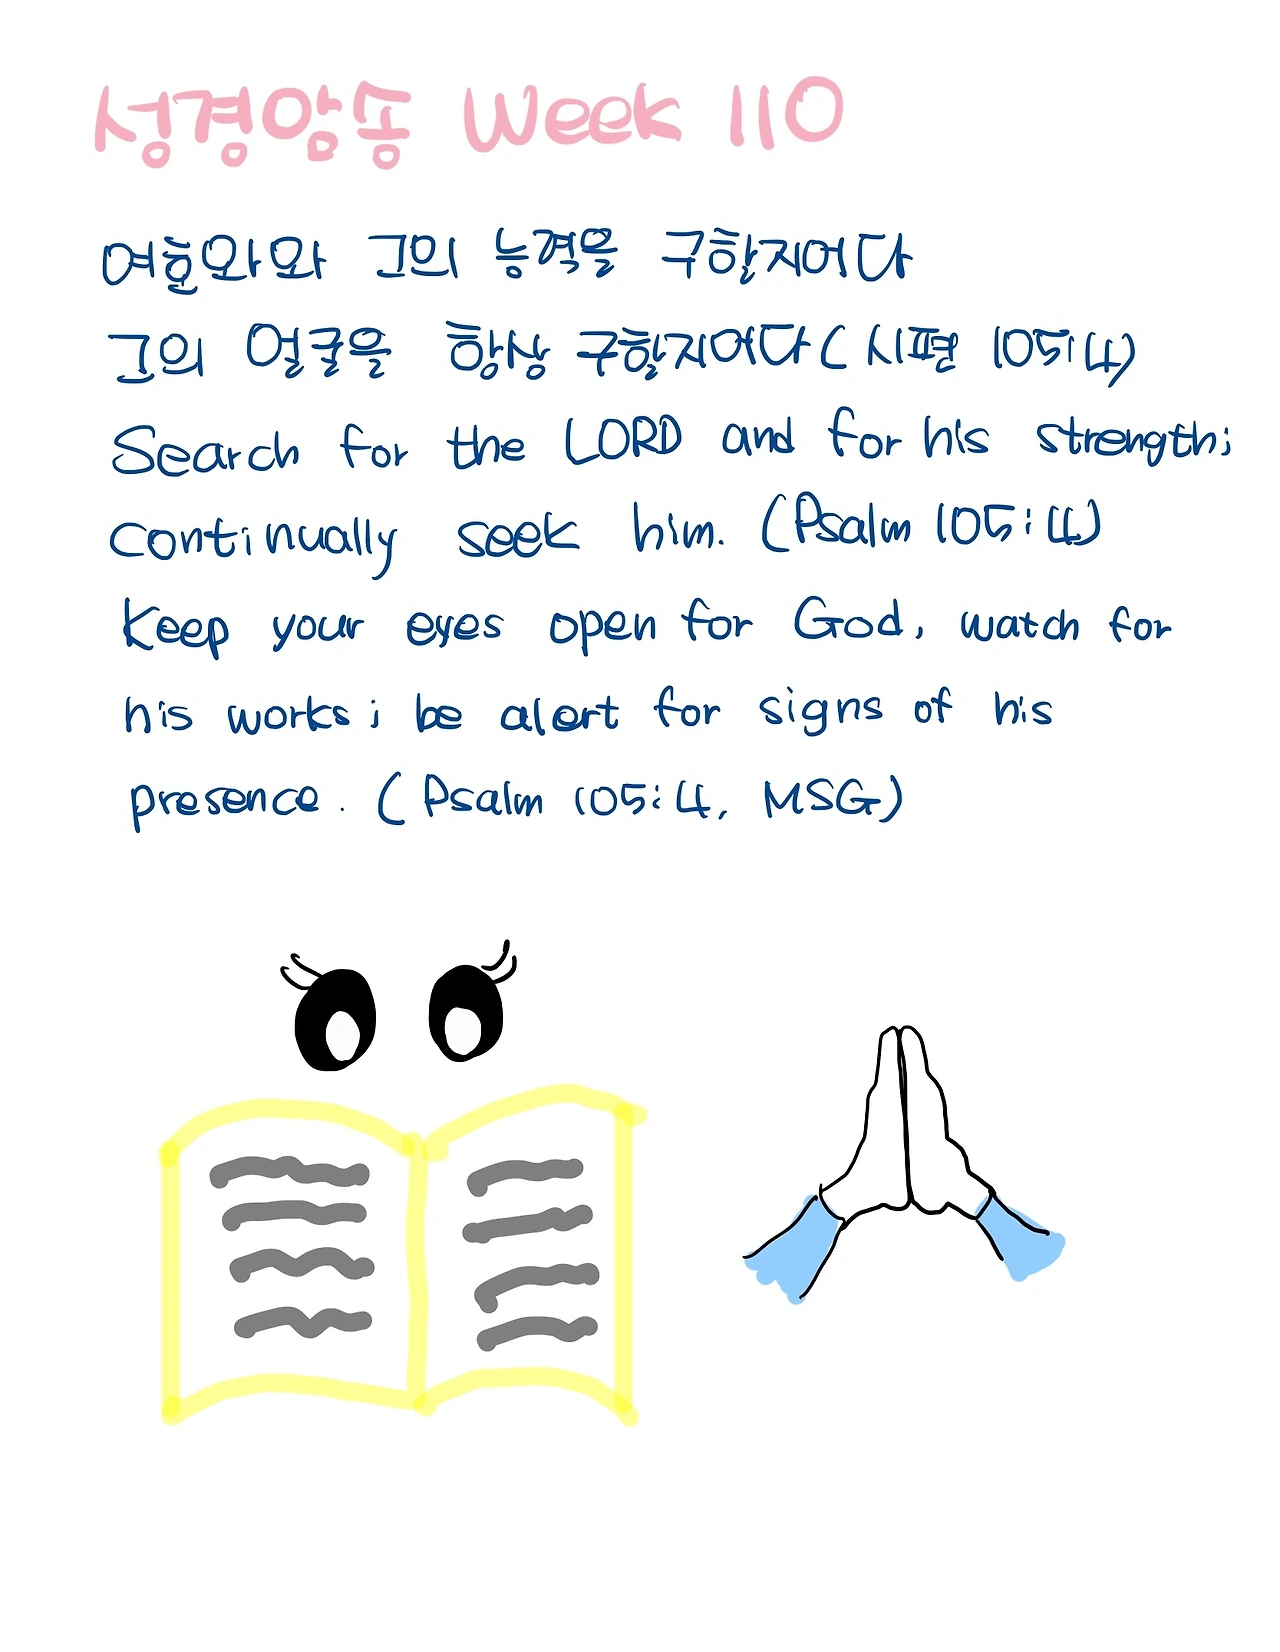 성경암송 Week 110
여호와와 그의 능력을 구할지어다
그의 얼굴을 항상 구할지어다 (시편 105:4)
Search for the LORD and for his strength;
continually seek him. (Psalm 105:4)
Keep your eyes open for God, watch for
his works; be alert for signs of his
presence. (Psalm 105:4, MSG)